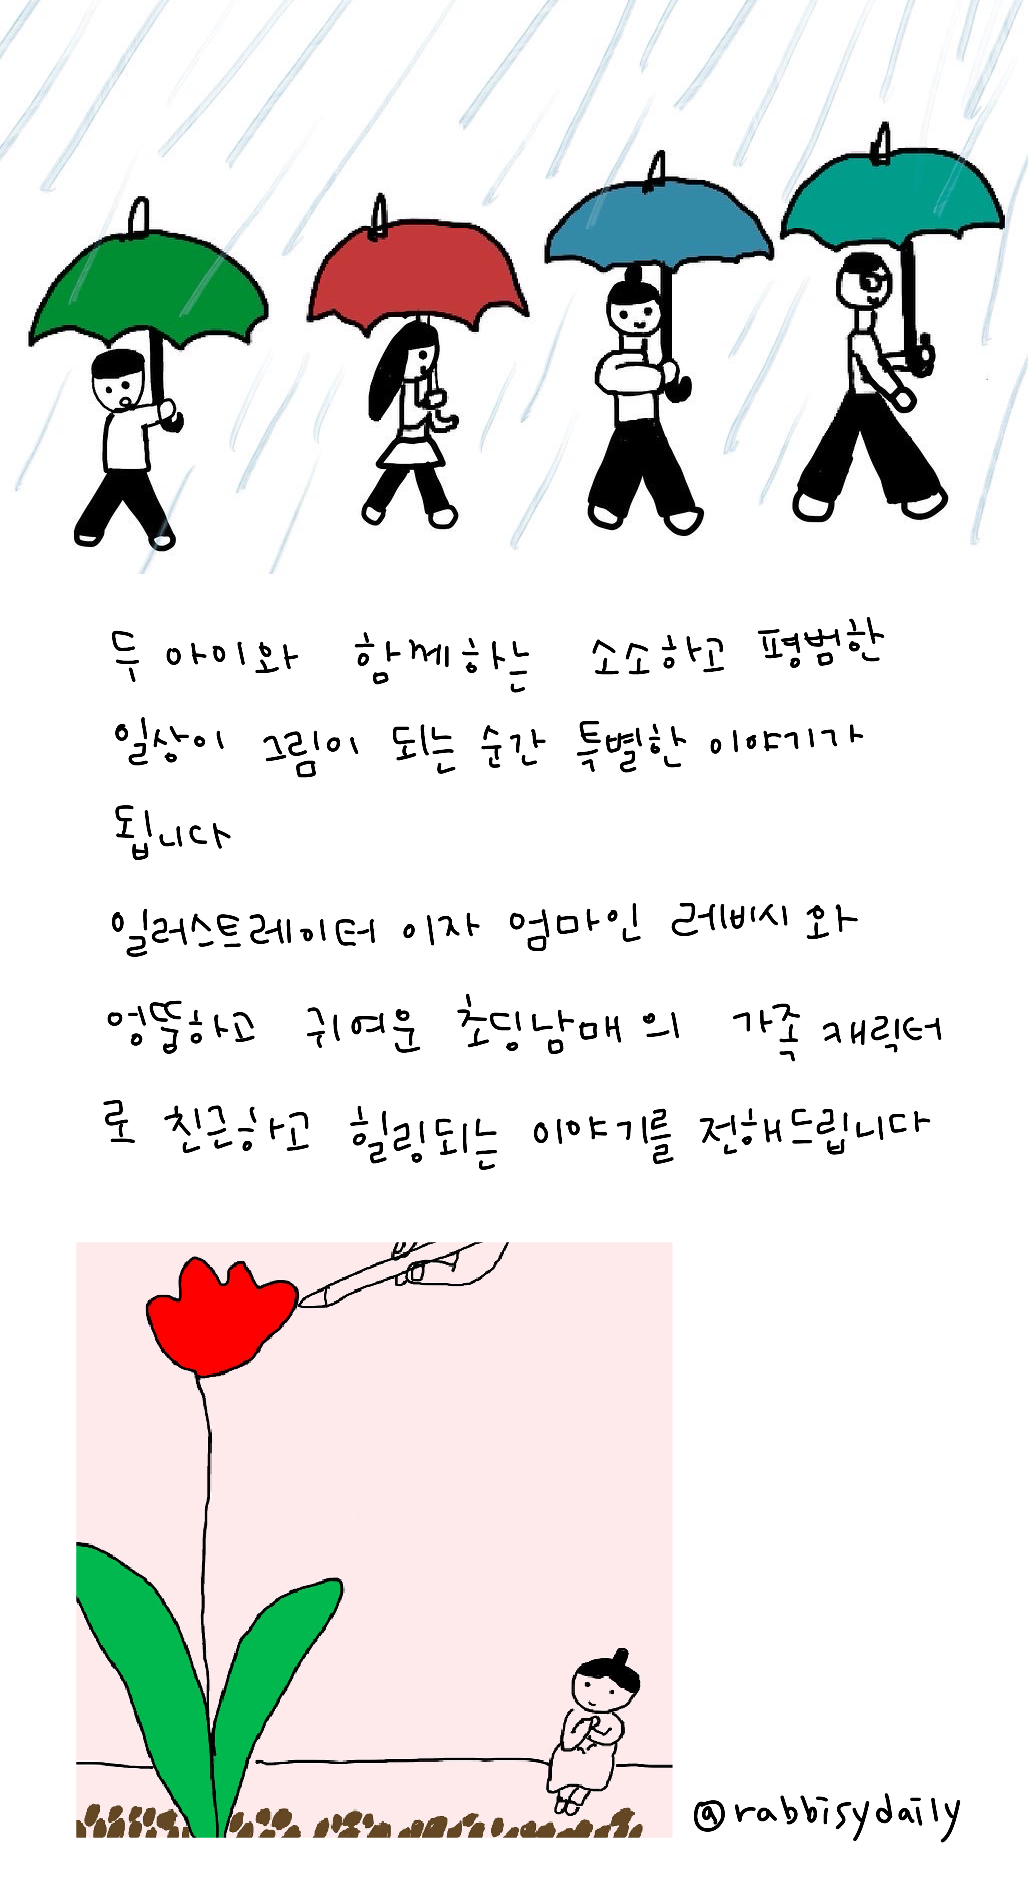 두 아이와 함께하는 소소하고 평범한
일상이 그림이 되는 순간 특별한 이야기가
됩니다
일러스트레이터 이자 엄마인 레비시와
엉뚱하고 귀여운 초딩남매의 가족 캐릭터
로 친근하고 힐링되는 이야기를 전해드립니다
@rabbisydaily